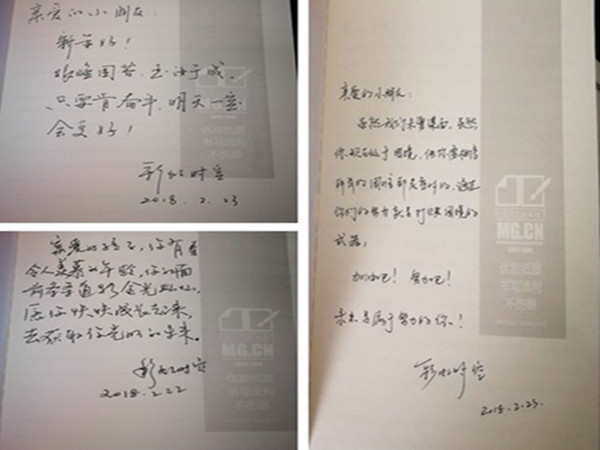 亲爱的小朋友：
新年好！
艰难困苦，玉汝于成，
只要肯奋斗，明天一定
会更好！
彩虹时空
2018.2.23
亲爱的孩子，你有着
令人羡慕的年龄，你的面
前条条道路金光灿灿，
愿你快快成长起来，
去获取你光明的未来。
彩虹时空
2018.2.22
MG.CN
亲爱的小朋友：
虽然我们未曾谋面，虽然
你现在处于困境，但你要相信
所有的困难都是暂时的，通过
你们的努力就是打败困境的
武器，
加油吧！努力吧！
未来是属于努力的你！
彩虹时空
2018.2.23.
MG.CN
优质纸质
书写流利
不伤眼